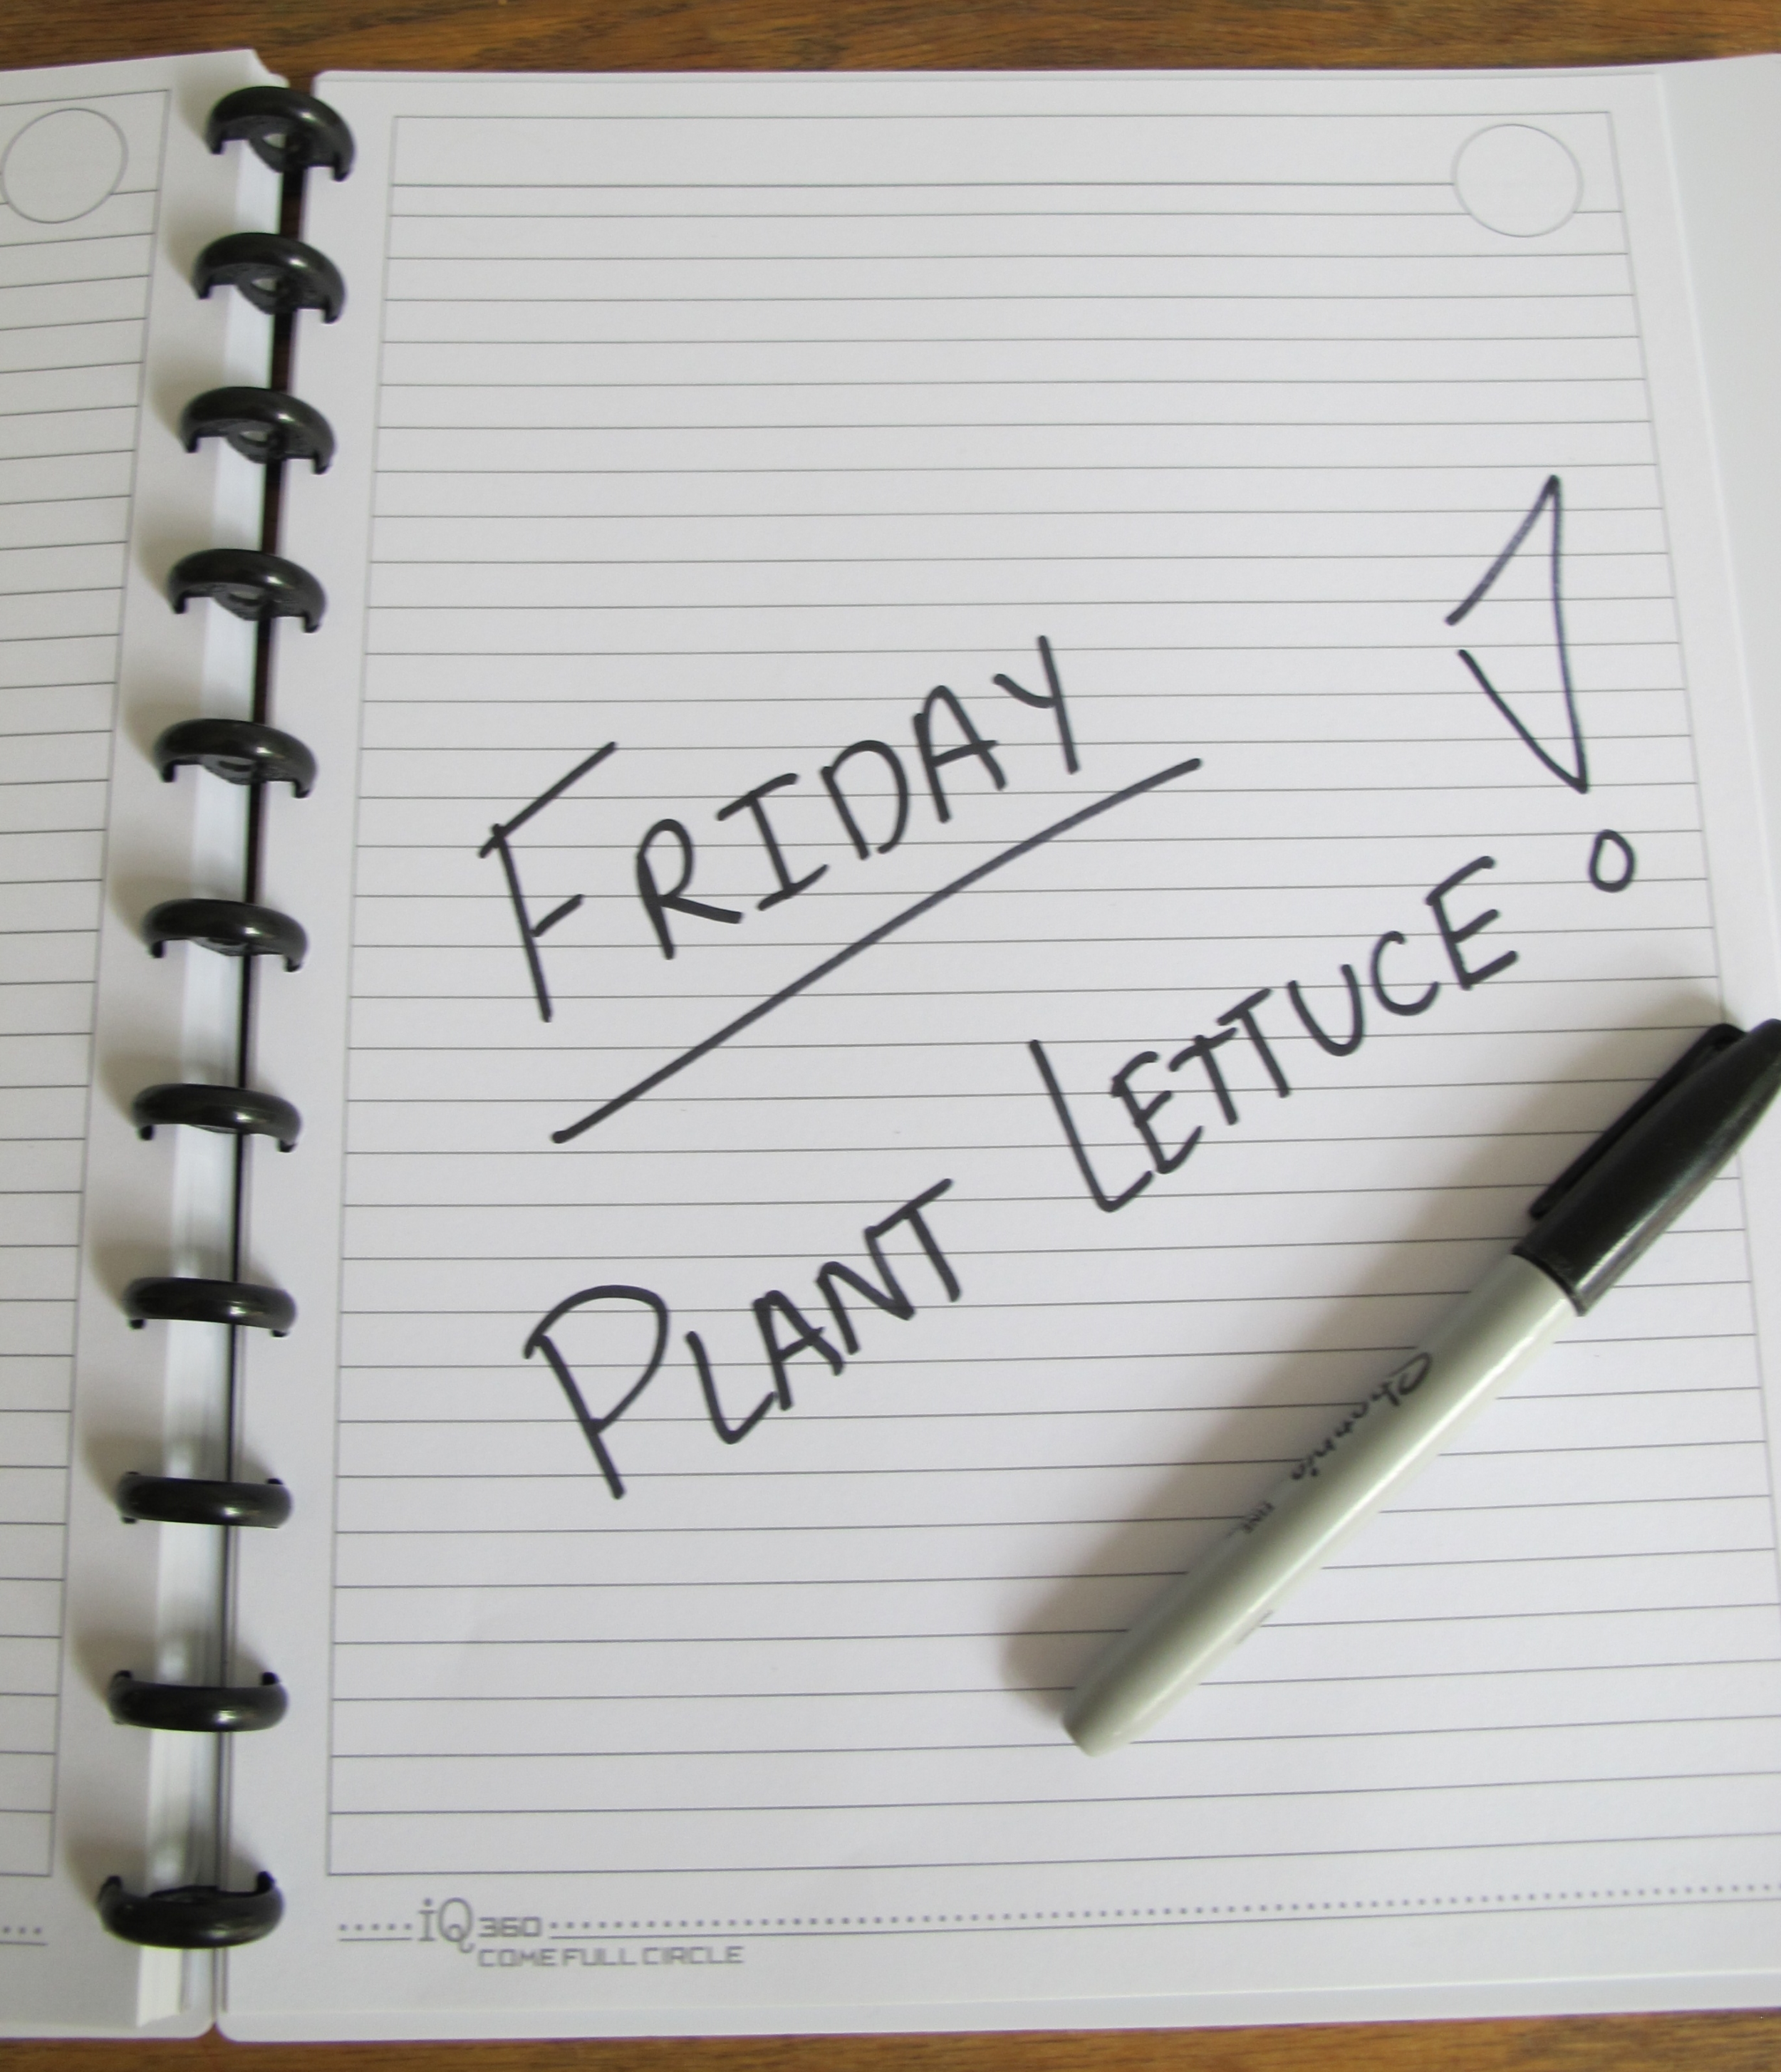 FRIDAY
PLANT LETTUCE!
FINE
iQ 360
COME FULL CIRCLE